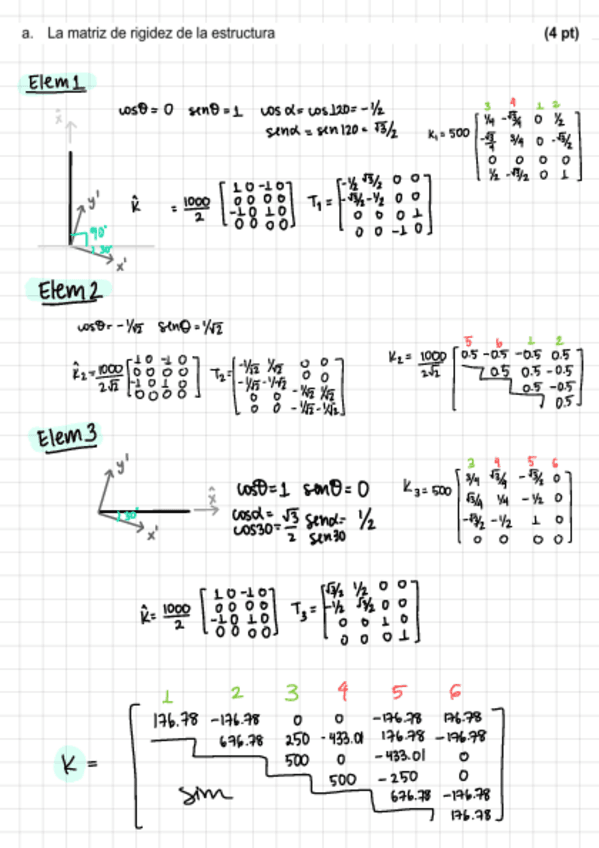 a. La matriz de rigidez de la estructura (4 pt)
Elem 1
cosθ = 0 senθ = 1 cos α = cos 120 = -1/2
senα = sen 120 = √3/2
K₁ = 500
3 4 1 2
1/4 -√3/4 0 1/2
-√3/4 3/4 0 -√3/2
0 0 0 0
1/2 -√3/2 0 1
x̂
y'
90°
30°
x'
k̂ = 1000/2
1 0 -1 0
0 0 0 0
-1 0 1 0
0 0 0 0
T₁ =
-1/2 √3/2 0 0
-√3/2 -1/2 0 0
0 0 0 1
0 0 -1 0
Elem 2
cosθ = -1/√2 senθ = 1/√2
k̂₂ = 1000/2√2
1 0 -1 0
0 0 0 0
-1 0 1 0
0 0 0 0
T₂ =
-1/√2 1/√2 0 0
-1/√2 -1/√2 0 0
0 0 -1/√2 1/√2
0 0 -1/√2 -1/√2
K₂ = 1000/2√2
5 6 1 2
0.5 -0.5 -0.5 0.5
0.5 0.5 -0.5
0.5 -0.5
0.5
Elem 3
y'
30°
x'
x̂
cosθ = 1 senθ = 0
cosα = √3/2 senα = 1/2
cos30 = sen 30
K₃ = 500
3 4 5 6
3/4 √3/4 -√3/2 0
√3/4 1/4 -1/2 0
-√3/2 -1/2 1 0
0 0 0 0
k̂ = 1000/2
1 0 -1 0
0 0 0 0
-1 0 1 0
0 0 0 0
T₃ =
√3/2 1/2 0 0
-1/2 √3/2 0 0
0 0 1 0
0 0 0 1
1 2 3 4 5 6
176.78 -176.78 0 0 -176.78 176.78
676.78 250 -433.01 176.78 -176.78
K =
500 0 -433.01 0
500 -250 0
sim
676.78 -176.78
176.78